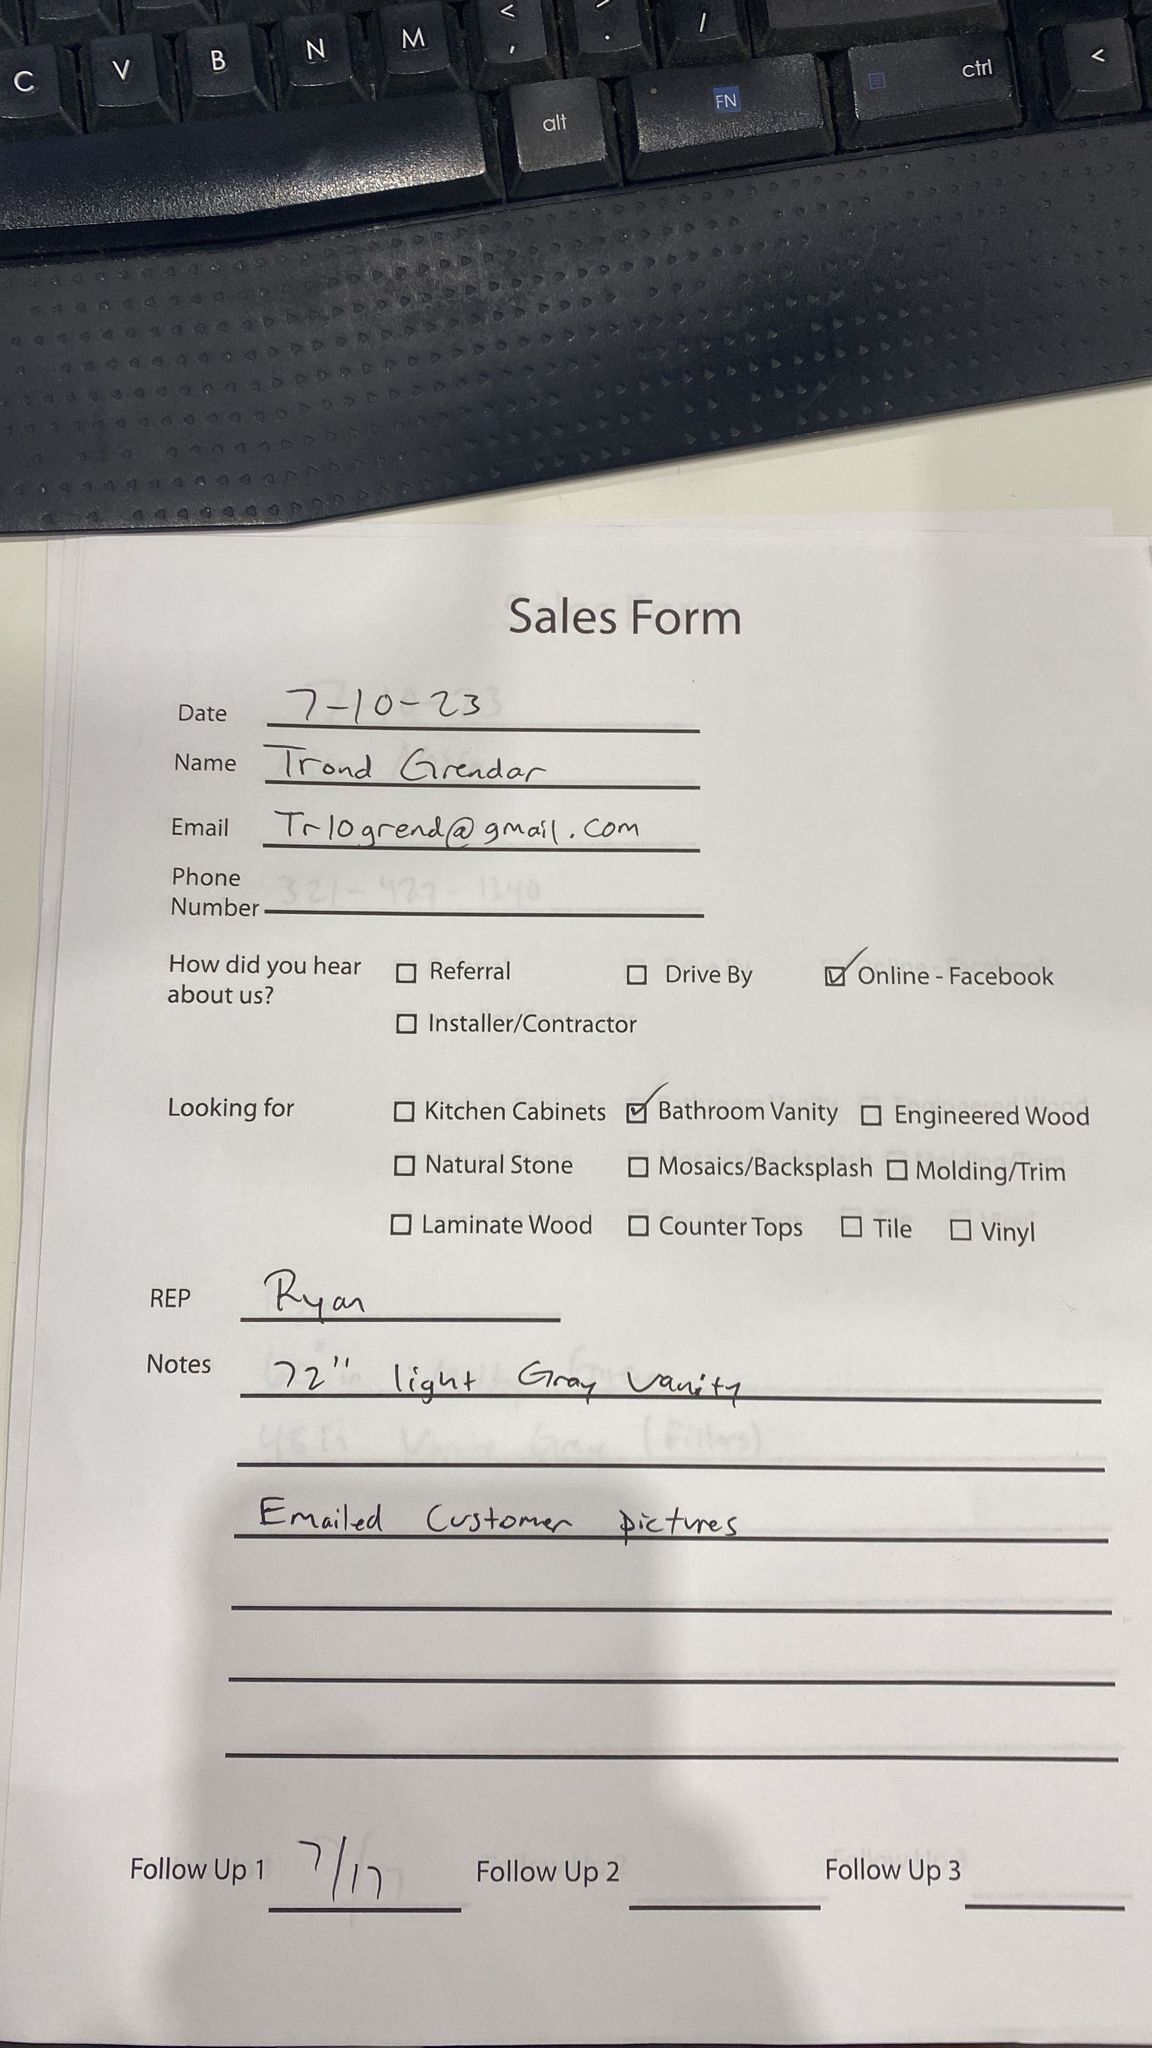 C V B N M < , > . /
alt FN ctrl <
Sales Form
Date 7-10-23
Name Trond Grendar
Email Tr10grend@gmail.com
Phone
Number
How did you hear about us? ☐ Referral ☐ Drive By ☑ Online - Facebook
☐ Installer/Contractor
Looking for ☐ Kitchen Cabinets ☑ Bathroom Vanity ☐ Engineered Wood
☐ Natural Stone ☐ Mosaics/Backsplash ☐ Molding/Trim
☐ Laminate Wood ☐ Counter Tops ☐ Tile ☐ Vinyl
REP Ryan
Notes 72" light Gray Vanity
Emailed Customer pictures
Follow Up 1 7/17 Follow Up 2 Follow Up 3